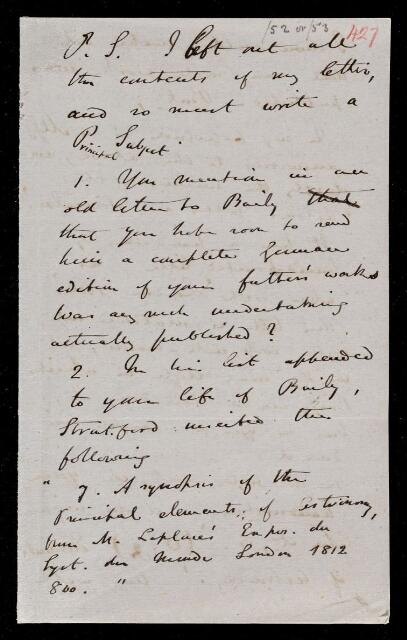 /52 or /53
427
P. S. I left out all
the contents of my letter,
and so must write a
Principal Subject.
1. You mention in an
old letter to Baily that
that you hope soon to send
him a complete German
edition of your father's works
Was any such undertaking
actually published?
2. In his list appended
to your life of Baily,
Stratford inserted the
following
" 7. A synopsis of the
Principal elements of Astronomy,
from M. Laplace's Expos. du
Syst. du Monde London 1812
8vo. "